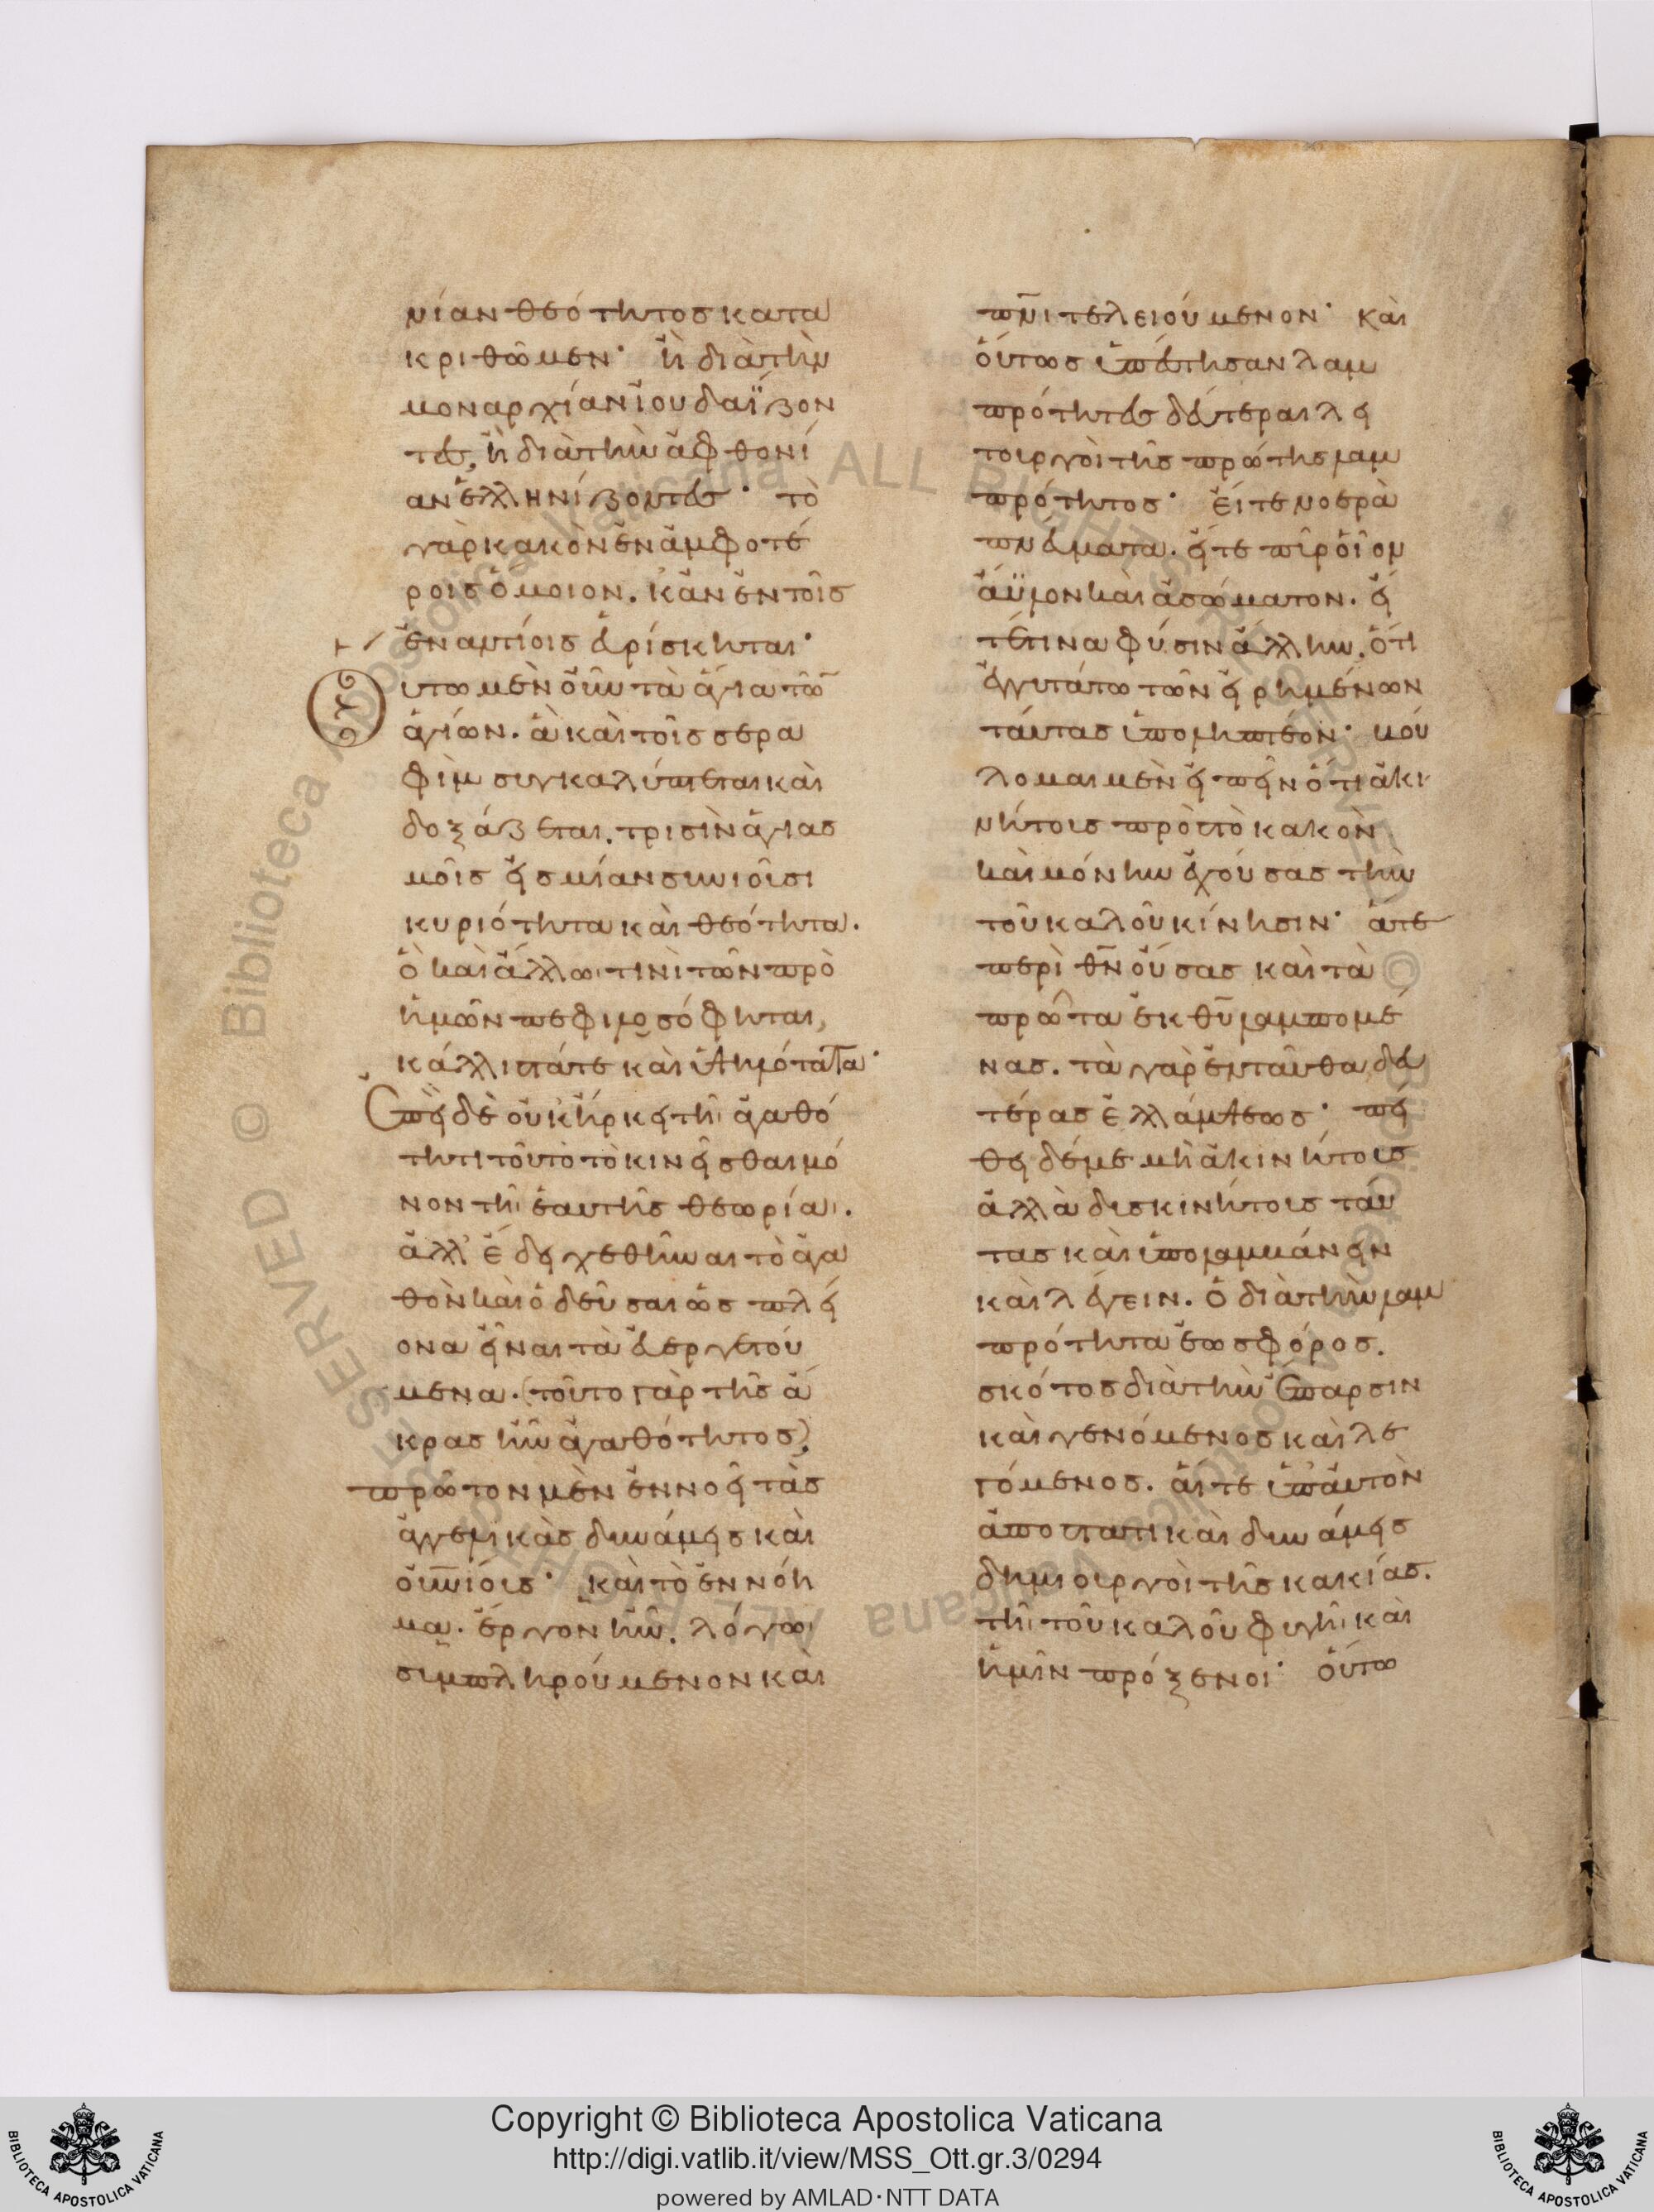 νίαν θεότητος κατα
κριθῶμεν· ἢ διὰ τὴν
μοναρχίαν ἰουδαΐζον
τες, ἢ διὰ τὴν ἀφθονί
αν ἑλληνίζοντες· τὸ
γὰρ κακὸν ἐν ἀμφοτέ
ροις ὅμοιον. κἂν ἐν τοῖς
ἐναντίοις εὑρίσκηται·
Οὕτω μὲν οὖν τὰ ἅγια τῶ̅
ἁγίων. ἃ καὶ τοῖς σερα
φὶμ συγκαλύπτεται καὶ
δοξάζεται. τρισὶν ἁγιας
μοῖς εἰς μίαν συνιοῦσι
κυριότητα καὶ θεότητα.
ὃ καὶ ἄλλωι τινὶ τῶν πρὸ
ἡμῶν πεφιλοσόφηται,
κάλλιστά τε καὶ ὑψηλότατα·
Ἐπεὶ δὲ οὐκ ἤρκει τῆι ἀγαθό
τητι τοῦτο τὸ κινεῖσθαι μό
νον τῆι ἑαυτῆς θεωρίαι.
ἀλλ' ἔδει χεθῆναι τὸ ἀγα
θὸν καὶ ὁδεῦσαι ὡς πλεί
ονα εἶναι τὰ εὐεργετού
μενα. (τοῦτο γὰρ τῆς ἄ
κρας ἦν ἀγαθότητος).
πρῶτον μὲν ἐννοεῖ τὰς
ἀγγελικὰς δυνάμεις καὶ
οὐ̅ν̅ιοις· καὶ τὸ ἐννόη
μα. ἔργον ἦν. λόγωι
συμπληρούμενον καὶ
πν̅ι τελειούμενον· καὶ
οὕτως ὑπέστησαν λαμ
πρότητες δεύτεραι λει
τουργοὶ τῆς πρώτης λαμ
πρότητος· εἴτε νοερὰ
πνεύματα. εἴτε πῦρ οἷον
ἄϋλον καὶ ἀσώματον. εἴ
τέ τινα φύσιν ἄλλην. ὅτι
ἐγγυτάτω τῶν εἰρημένων
ταύτας ὑποληπτέον· βού
λομαι μὲν εἰπεῖν ὅτι ἀκι
νήτοις πρὸς τὸ κακὸν
καὶ μόνην ἐχούσας τὴν
τοῦ καλοῦ κίνησιν· ἅτε
περὶ θν̅ οὔσας καὶ τὰ
πρῶτα ἐκ θυ̅ λαμπομέ
νας. τὰ γὰρ ἐνταῦθα δευ
τέρας ἐλλάμψεως· πεί
θει δέ με μὴ ἀκινήτοις
ἀλλὰ δυσκινήτοις ταύ
τας καὶ ὑπολαμβάνειν
καὶ λέγειν. ὁ διὰ τὴν λαμ
πρότητα ἑωσφόρος.
σκότος διὰ τὴν ἔπαρσιν
καὶ γενόμενος καὶ λε
γόμενος. αἵ τε ὑπ' αὐτὸν
ἀποστατικαὶ δυνάμεις
δημιουργοὶ τῆς κακίας.
τῆι τοῦ καλοῦ φυγῆι καὶ
ἡμῖν πρόξενοι· οὕτω
Copyright © Biblioteca Apostolica Vaticana
http://digi.vatlib.it/view/MSS_Ott.gr.3/0294
powered by AMLAD·NTT DATA